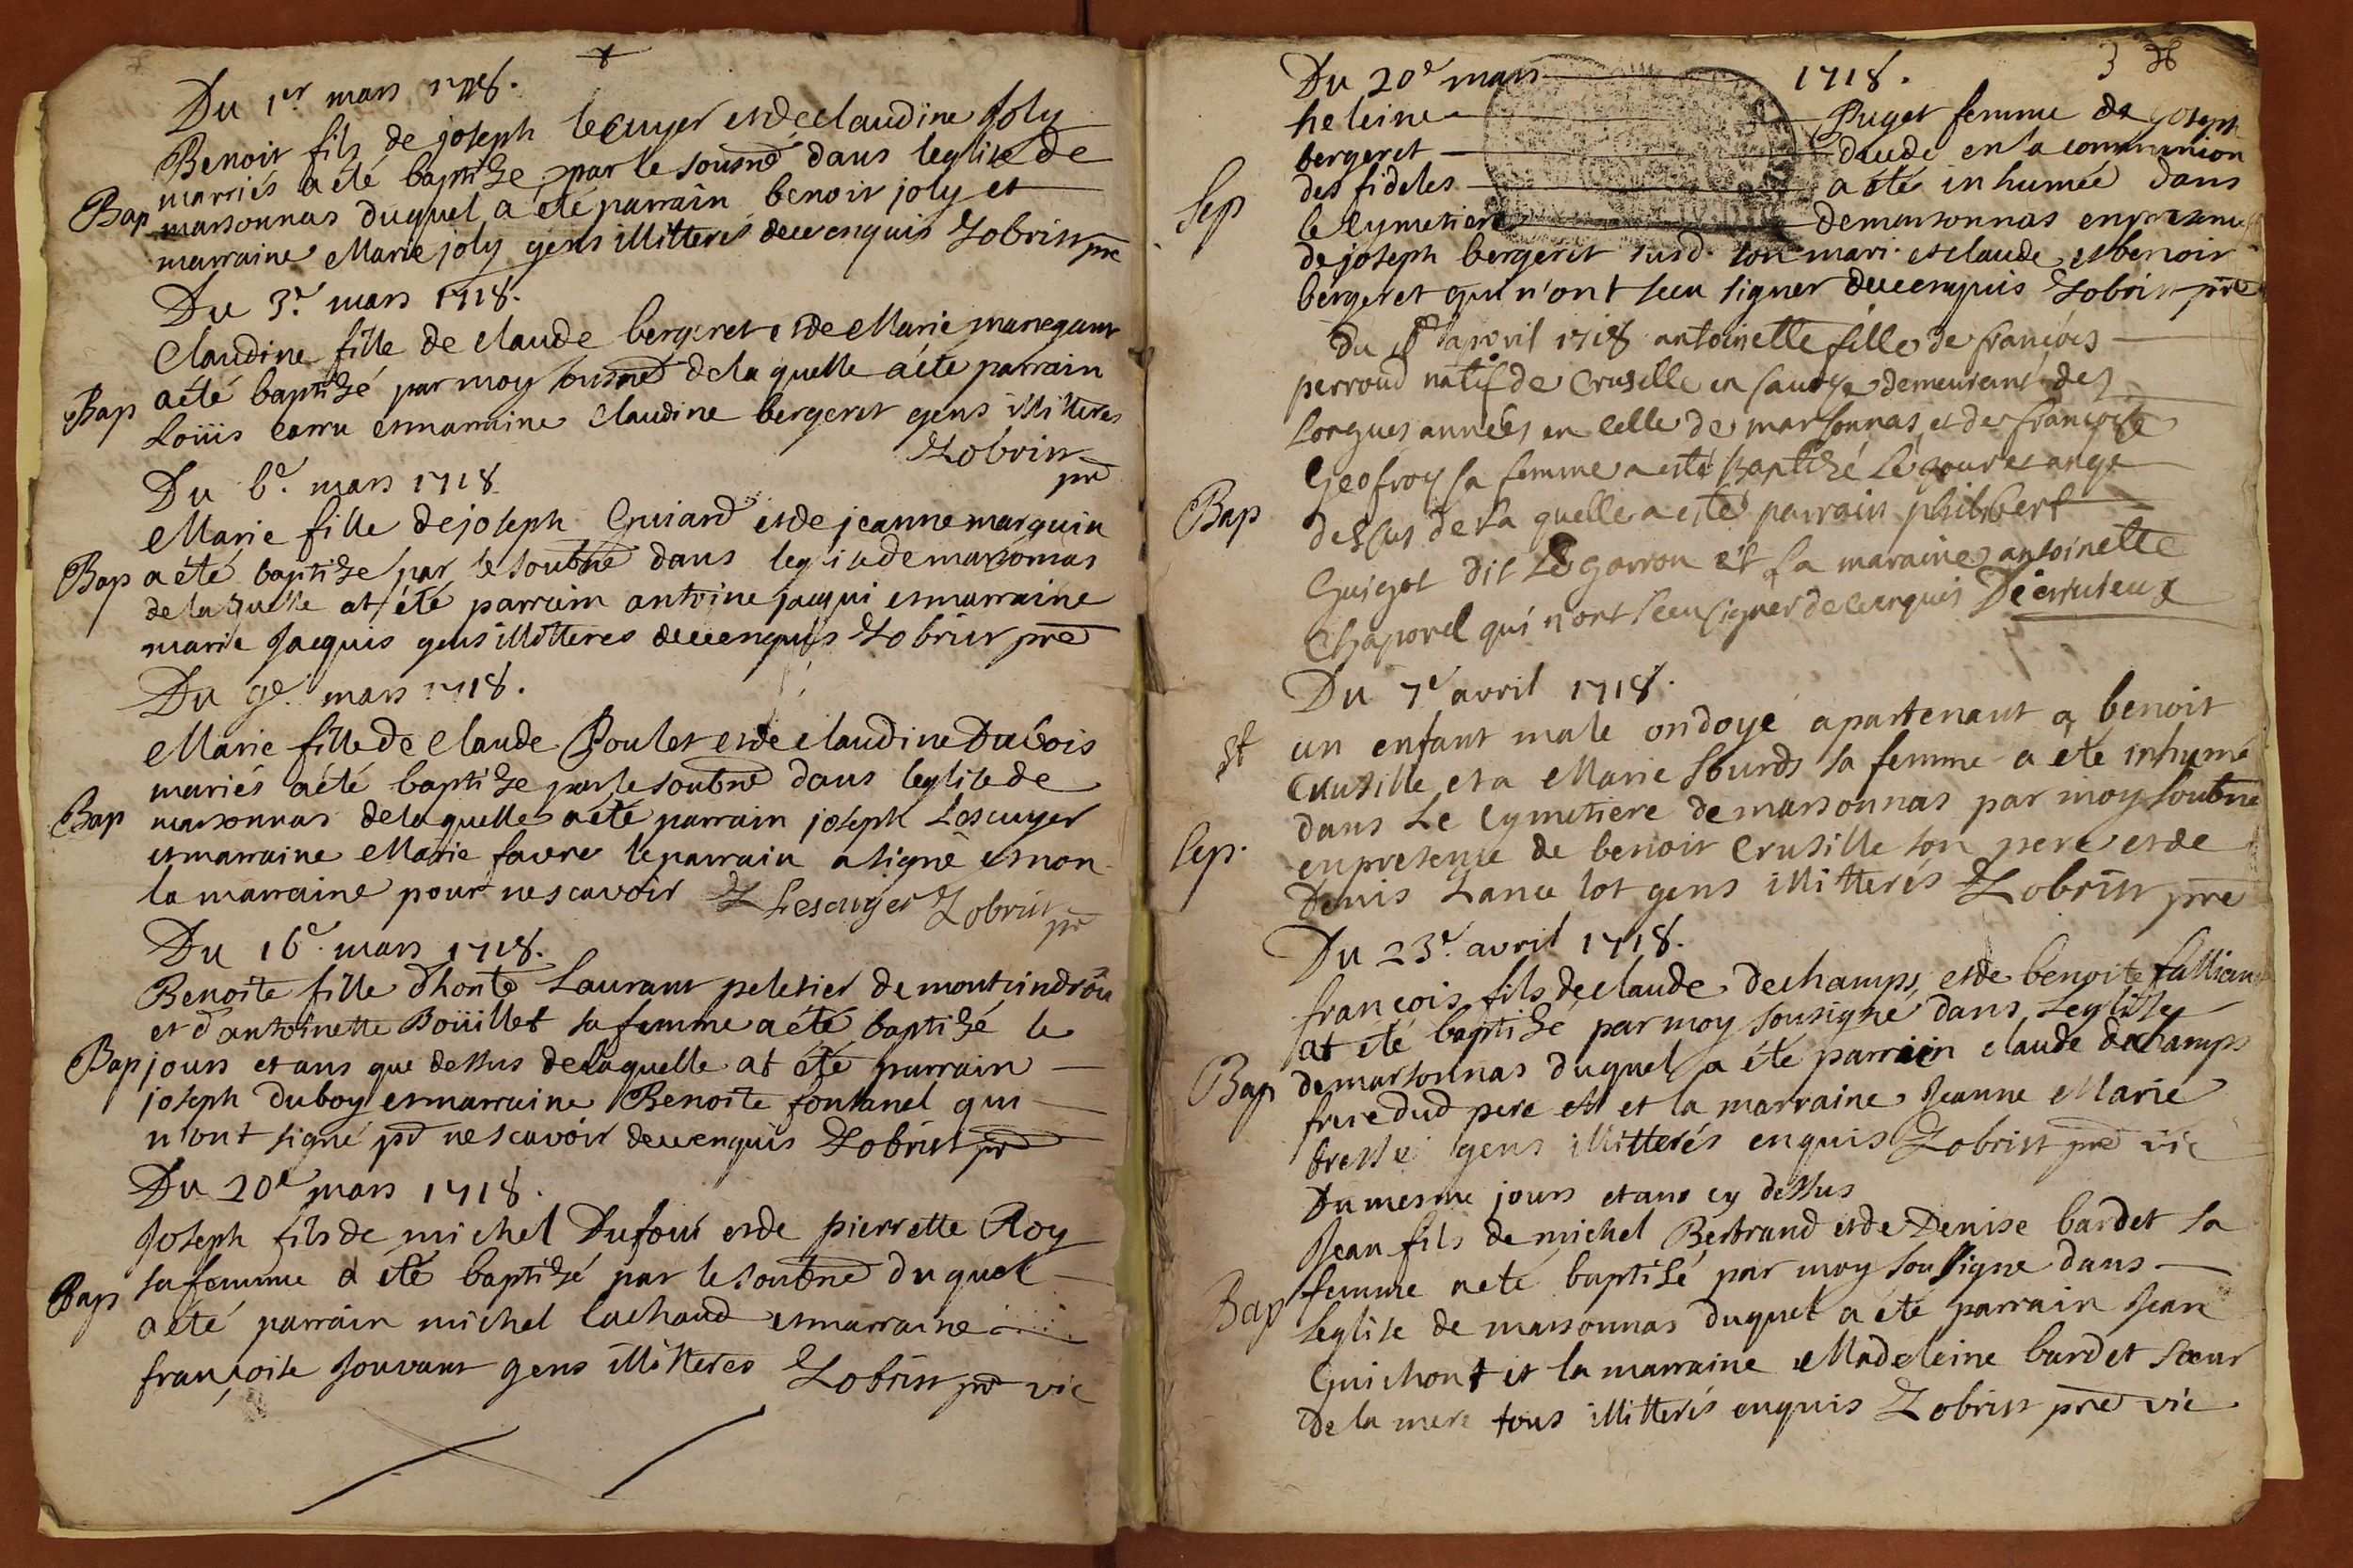 Du 1er mars 1718.
Benoit fils de joseph lecuyer et de claudine Joly
marriés a été baptizé par le sousné dans leglise de
Bap marsonnas duquel a été parrain benoit joly et
marraine Marie joly gens illitterés de ce enquis Zobrist pre
Du 3e. mars 1718.
Claudine fille de claude bergeret et de Marie
Bap a été baptizé par moy sousné de la quelle a été parrain
Loüis carru et marraine claudine bergeret gens illitteres
Zobrist
pre
Du 6e. mars 1718
Marie fille de joseph Guiard et de jeanne marguin
Bap a été baptizé par le soubné dans leglise de marsonnas
de laquelle at été parrain antoine jacqui et marraine
marie Jacquis gens illitteres de ce enquis Zobrist pre
Du 9e. mars 1718.
Marie fille de claude Poulet et de claudine Dubois
mariés a été baptizé par le soubné dans leglise de
Bap marsonnas de laquelle a été parrain joseph Lescuyer
et marraine Marie favre le parrain a signé et non
la marraine pour ne scavoir Lescuyer Zobrist
pre
Du 16e. mars 1718.
Benoite fille d'honte Laurant peletier de
et d'antoinette Boüillet sa femme a été baptizé le
Bap jours et ans que dessus de laquelle at été parrain
joseph duboy et marraine Benoite fontanel qui
n'ont signé pr ne scavoir de ce enquis Zobrist pre
Du 20e mars 1718.
Joseph fils de michel Dufour et de pierrette Roy
sa femme a été baptizé par le soubné du quel
Bap a été parrain michel lachaud et marraine
françoise Jouvant gens illitteres Zobrist pre vic
3 36
Du 20e mars 1718.
heleine Puget femme de joseph
bergeret en la communion
des fideles a été inhumée dans
Sep le cymetiere de marsonnas en presence
de joseph bergeret susd. son mari et claude et benoir
bergeret qui n'ont sceu signer de ce enquis Zobrist pre
du avril 1718 antoinette fille de françois
perroud natif de Cruselle en savoye demeurant des
Longues années en celle de marsonnas et de françoise
Geofroy sa femme a esté baptizé le jour et an
Bap dessus de la quelle a esté parrain philibert
Guigot dit Le garron et la maraine antoinette
Chaporel qui n'ont sceu signer de ce enquis
Du 7e avril 1718.
un enfant male ondoyé apartenant a benoit
Crusille et a Marie Sourds sa femme a été inhumé
dans Le cymetiere de marsonnas par moy soubné
Sep. en presence de benoit Crusille son pere et de
Denis Lance lot gens illitterés Zobrist pre
Du 23e. avril 1718.
françois fils de claude dechamps et de benoite
at été baptizé par moy sousigné dans leglise
Bap de marsonnas duquel a été parrain claude dechamps
frere dud pere et et la marraine Jeanne Marie
gens illitterés enquis Zobrist pre vic
Du mesme jours et ans cy dessus
Jean fils de michel Bertrand et de Denise bardet sa
femme a eté baptisé par moy sousigne dans
Bap leglise de marsonnas duquel a été parrain Jean
Guichont et la marraine Madeleine bardet sœur
de la mere tous illitterés enquis Zobrist pre vic